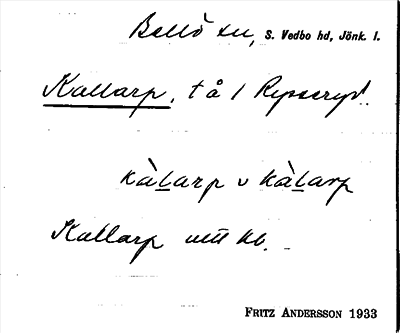 Bellö sn, S. Vedbo hd, Jönk. l.
Kallarp, t å / Ripseryd.
kàLarp v kàLarp
Kallarp utt hb.
FRITZ ANDERSSON 1933